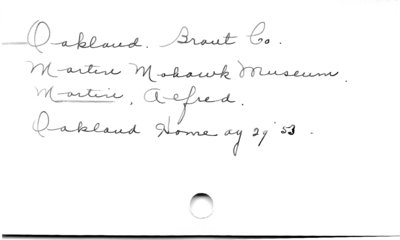 Oakland. Brant Co.
Martin Mohawk Museum.
Martin, Alfred.
Oakland Home ag 29 '53.